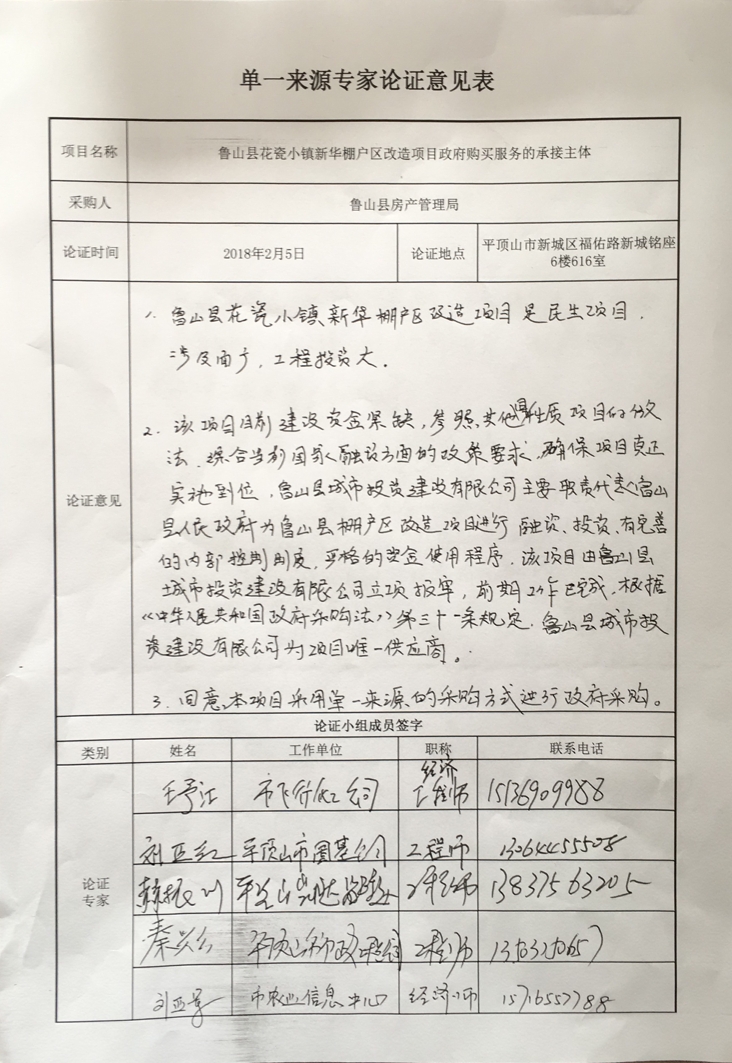 单一来源专家论证意见表
项目名称 鲁山县花瓷小镇新华棚户区改造项目政府购买服务的承接主体
采购人 鲁山县房产管理局
论证时间 2018年2月5日 论证地点 平顶山市新城区福佑路新城铭座
6楼616室
论证意见
1、鲁山县花瓷小镇新华棚户区改造项目是民生项目，
涉及面广，工程投资大.
2、该项目目前建设资金紧缺，参照其他同性质项目的做
法，综合当前国家融资方面的政策要求，确保项目真正
实施到位，鲁山县城市投资建设有限公司主要职责代表鲁山
县人民政府为鲁山县棚户区改造项目进行融资、投资、有完善
的内部控制制度，严格的资金使用程序，该项目由鲁山县
城市投资建设有限公司立项报审，前期工作已完成，根据
《中华人民共和国政府采购法》第三十一条规定，鲁山县城市投
资建设有限公司为项目唯一供应商。
3、同意本项目采用单一来源的采购方式进行政府采购。
论证小组成员签字
类别 姓名 工作单位 职称 联系电话
论证
专家
经济
工程师 15136909988
刘亚红 平顶山市 工程师 13064455508
工程师 13837563205
秦 工程师
刘亚 市农业信息中心 经济师 15716557788